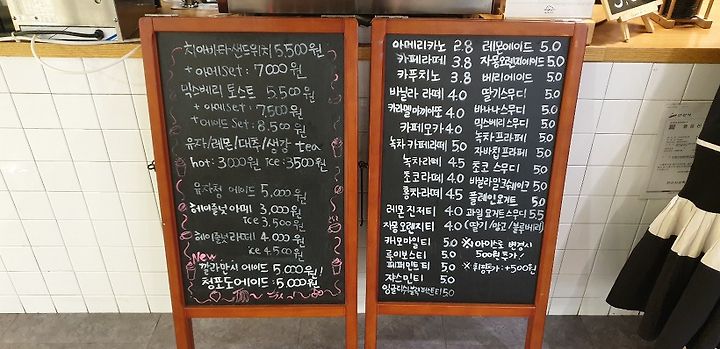 치아바타샌드위치 5.500원
+ 아메Set: 7000원
믹스베리 토스트 5.500원
+ 아메Set: 7,500원
+ 에이드Set: 8.500원
유자/레몬/대추/생강 tea
hot: 3.000원 ice: 3500원
유자청 에이드 5.000원
헤이즐넛 아메 3,000원
ice 3.500원
헤이즐넛 라떼 4.000원
ice 4500원
New
깔라만시 에이드 5.000원!
청포도에이드: 5.000원
아메리카노 2.8
카페라떼 3.8
카푸치노 3.8
바닐라 라떼 4.0
카라멜마끼아또 4.0
카페모카 4.0
녹차카페라떼 5.0
녹차라떼 4.5
초코라떼 4.0
홍차라떼 4.5
레몬 진저티 4.0
자몽오렌지티 4.0
캐모마일티 5.0
루이보스티 5.0
페퍼민트티 5.0
쟈스민티 5.0
잉글리쉬블랙퍼스트티 5.0
레몬에이드 5.0
자몽오렌지에이드 5.0
베리에이드 5.0
딸기스무디 5.0
바나나스무디 5.0
믹스베리스무디 5.0
녹차프라페 5.0
자바칩프라페 5.0
초코 스무디 5.0
바닐라밀크쉐이크 5.0
플레인요거트 5.0
과일 요거트스무디 5.5
(딸기/망고/블루베리)
※ 아이스로 변경시
500원추가!
※ 휘핑추가: +500원